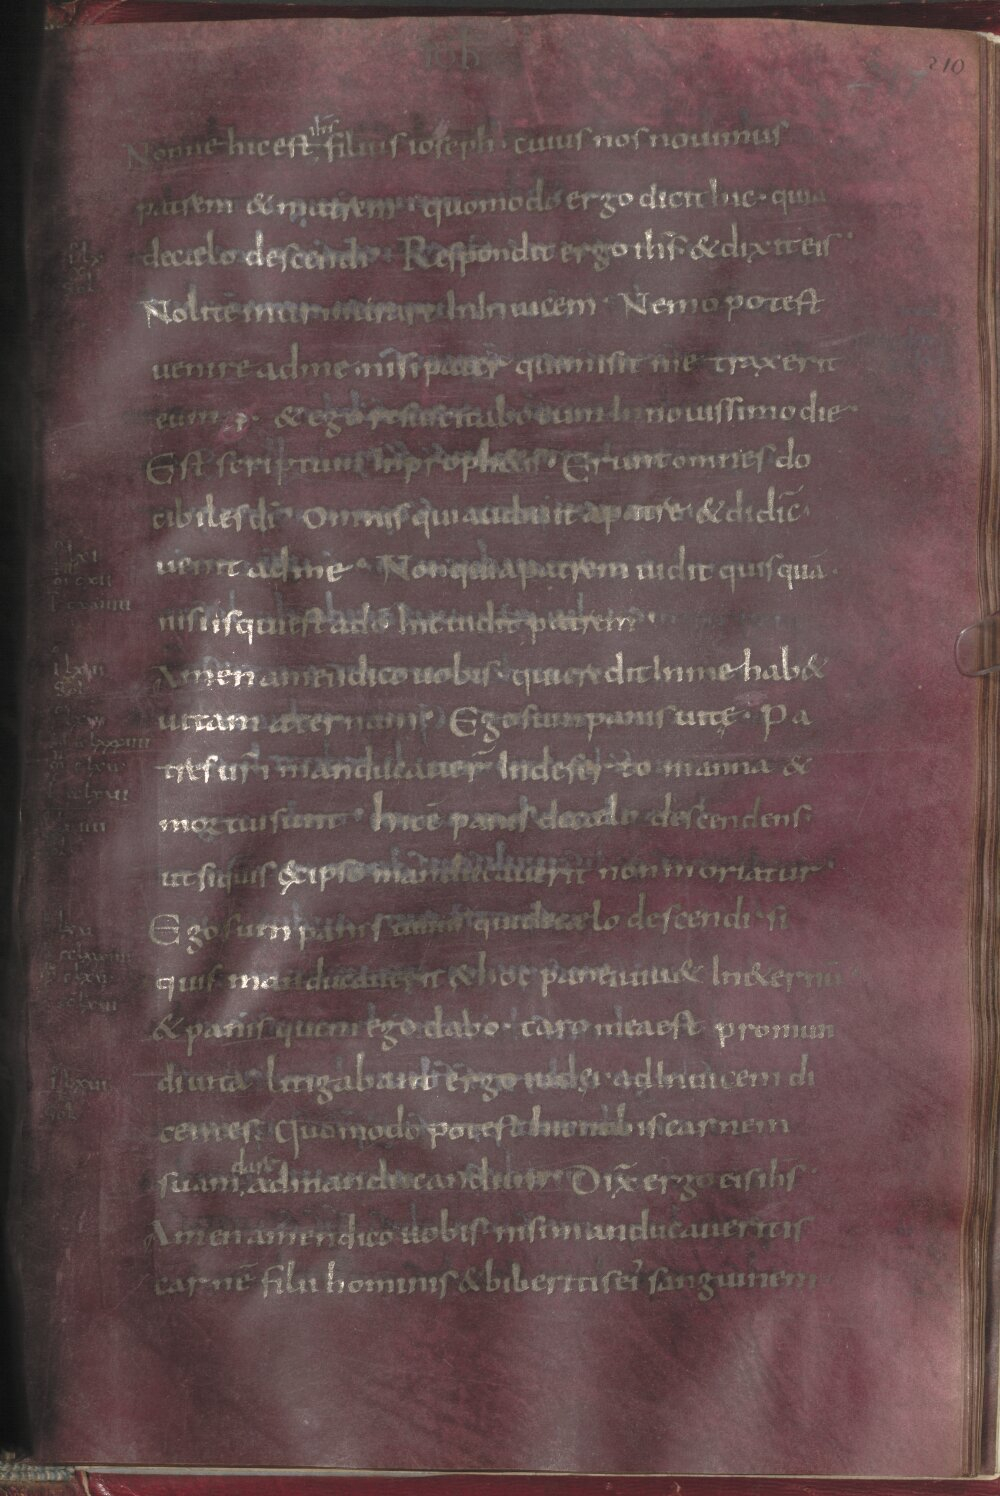 ioh
210
Nonne hic est ihs filius ioseph · cuius nos nouimus
patrem & matrem · quomodo ergo dicit hic · quia
decaelo descendi · Respondit ergo ihs & dixit eis ·
Nolite murmurare InInuicem · Nemo potest
uenire adme nisi pater qui misit me traxerit
eum · & ego resuscitabo eum In nouissimo die ·
Est scriptum In proph&is · Erunt omnes do
cibiles dī · Omnis qui audiuit apatre · & didic̄
uenit adme · Non quia patrem uidit quisquā ·
nisi isqui est adō hic uidit patrem ·
Amen amen dico uobis · qui credit In me hab&
uitam aeternam · Ego sum panis uitę · Pa
tres urī manducauer̄ In deserto manna &
mortui sunt · hic ē panis decaelo descendens ·
ut siquis ex ipso manducauerit non moriatur ·
Ego sum panis uiuus qui decaelo descendi · si
quis manducauerit & hoc pane uiu& In&ernū
& panis quem ego dabo · caro mea est promun
di uita · litigabant ergo iudęi adInuicem di
centes · Quomodo potest hic nobis carnem
suam dare admanducandum · Dix̄ ergo eis ihs ·
Amen amen dico uobis · nisi manducaueritis
carnē filii hominis & biberitis ei' sanguinem